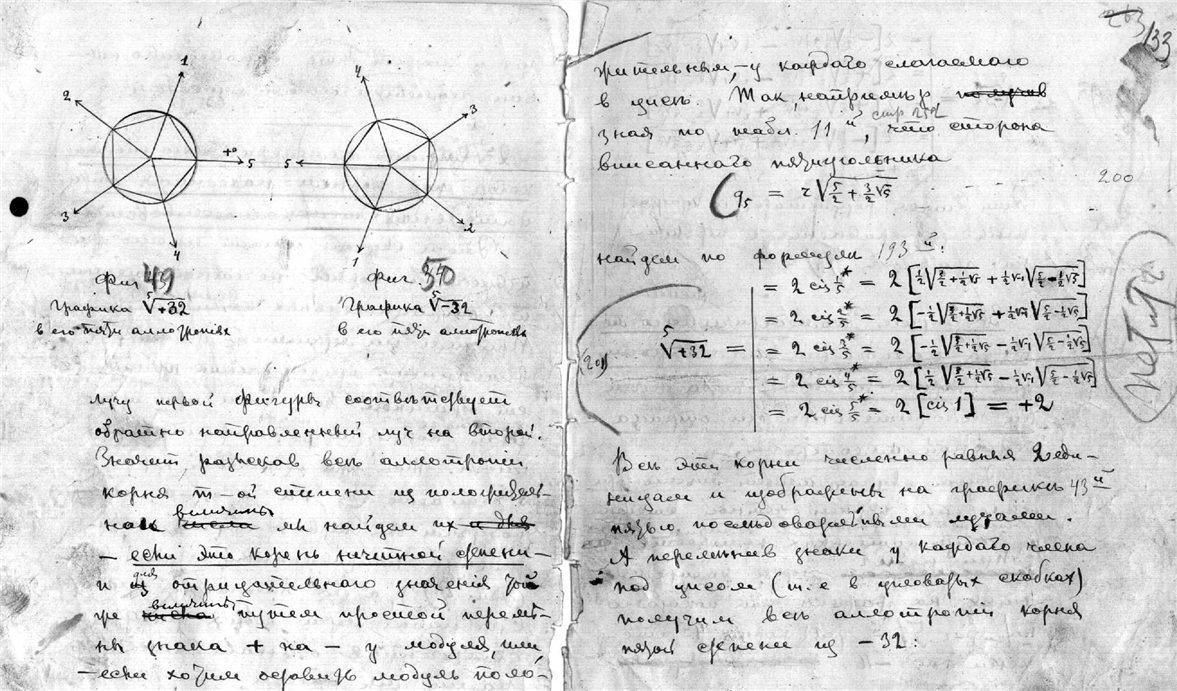 1
2
+°
5
3
4
4
3
5
2
1
Фиг 49
Графика ⁵√+32
в его пяти аллотропіяхъ
Фиг. 50
Графика ⁵√−32
в его пяти аллотропіяхъ
лучу первой фигуры соотвѣтствует
обратно направленный луч на второй.
Значит, разыскав всѣ аллотропіи
корня m–ой степени из положитель-
ной величины мы найдем их
– если это корень нечетной степени –
и для отрицательнаго значенія той
же величины путем простой перемѣ-
ны знака + на – у модуля, или
– если хотим оставить модуль поло-
263
133
жительным,– у каждаго слагаемаго
в цисѣ. Так, например,
стр 252
зная по табл. 11й, что сторона
вписаннаго пятиугольника
200
q₅ = r√(5/2 + 3/2 √5)
найдем по формулѣ 193й:
= 2 cis 1/5* = 2 [½√(3/2+½√5) + ½√-1 √(5/2−½√5)]
= 2 cis 2/5* = 2 [−½√(3/2+½√5) + ½√-1 √(5/2−½√5)]
201
⁵√+32 = = 2 cis 3/5* = 2 [−½√(3/2+½√5) − ½√-1 √(5/2−½√5)]
= 2 cis 4/5* = 2 [½√(3/2+½√5) − ½√-1 √(5/2−½√5)]
= 2 cis 5/5* = 2 [cis 1] = +2
петитъ
Всѣ эти корни численно равны 2 еди-
ницам и изображены на графикѣ 43й
пятью послѣдовательными лучами.
А перемѣнив знаки у каждаго члена
под цисом (т.е в угловатых скобках)
получим всѣ аллотропіи корня
пятой степени из −32: